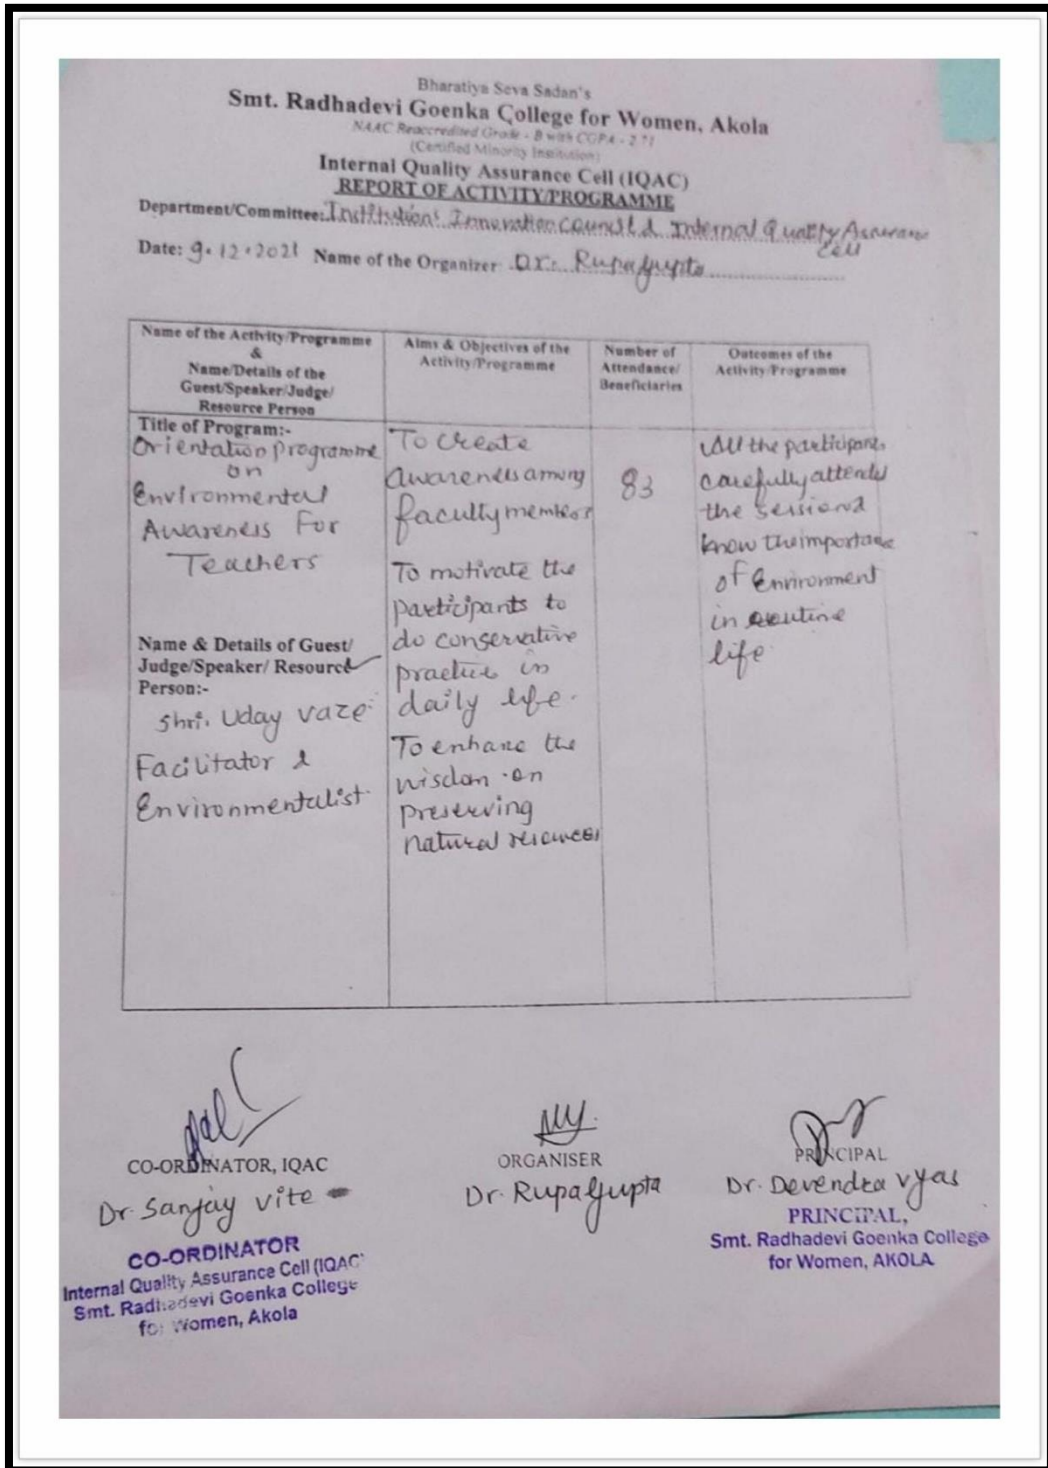 Bharatiya Seva Sadan's
Smt. Radhadevi Goenka College for Women, Akola
NAAC Reaccredited Grade - B with CGPA - 2.71
(Certified Minority Institution)
Internal Quality Assurance Cell (IQAC)
REPORT OF ACTIVITY/PROGRAMME
Department/Committee: Institutions Innovation Council & Internal Quality Assurance
Cell
Date: 9.12.2021 Name of the Organizer Dr. Rupa Gupta
Name of the Activity/Programme
&
Name/Details of the
Guest/Speaker/Judge/
Resource Person
Aims & Objectives of the
Activity/Programme
Number of
Attendance/
Beneficiaries
Outcomes of the
Activity/Programme
Title of Program:-
Orientation Programme
on
Environmental
Awareness For
Teachers
Name & Details of Guest/
Judge/Speaker/ Resource
Person:-
Shri. Uday Vaze
Facilitator &
Environmentalist.
To Create
Awareness among
faculty members
To motivate the
participants to
do conservative
practice in
daily life.
To enhance the
wisdom on
preserving
natural resources
83
All the participants
carefully attended
the session &
know the importance
of Environment
in routine
life.
CO-ORDINATOR, IQAC
Dr. Sanjay Vite
CO-ORDINATOR
Internal Quality Assurance Cell (IQAC)
Smt. Radhadevi Goenka College
for Women, Akola
ORGANISER
Dr. Rupa Gupta
PRINCIPAL
Dr. Devendra Vyas
PRINCIPAL,
Smt. Radhadevi Goenka College
for Women, AKOLA